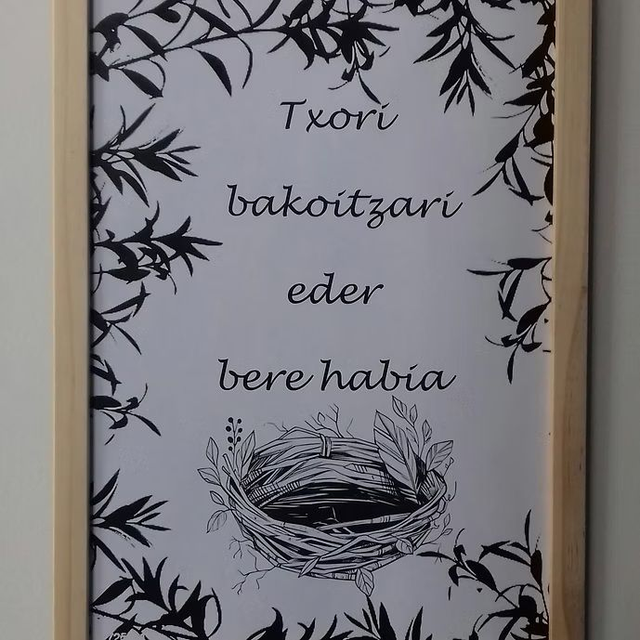 Txori
bakoitzari
eder
bere habia